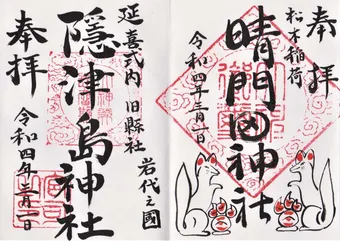 奉拝
松本稲荷
晴門田神社
令和四年三月一日
延喜式内 旧縣社
岩代之國
隠津島神社
奉拝
令和四年三月一日